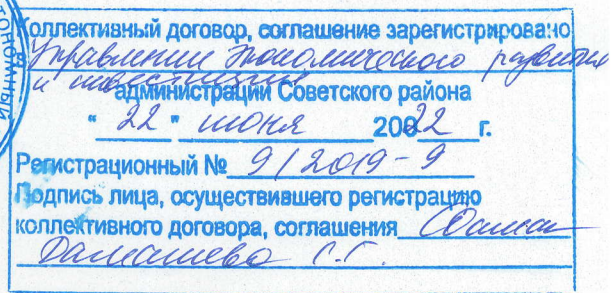 Коллективный договор, соглашение зарегистрировано
в Управлении экономического развития
и инвестиций
администрации Советского района
"22" июня 20022 г.
Регистрационный № 9/2019-9
Подпись лица, осуществившего регистрацию
коллективного договора, соглашения
С.Г.